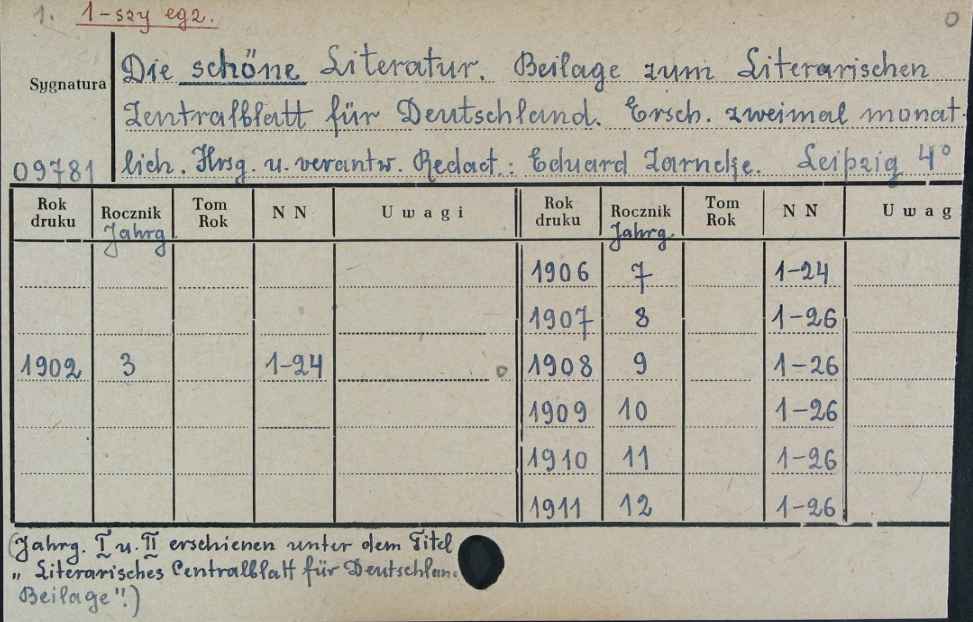 1. 1-szy egz.
Sygnatura
09781
Die schöne Literatur. Beilage zum Literarischen
Zentralblatt für Deutschland. Ersch. zweimal monat-
lich. Hrsg. u. verantw. Redact.: Eduard Zarncke. Leipzig 4°
Rok druku Rocznik Jahrg. Tom Rok N N Uwagi Rok druku Rocznik Jahrg. Tom Rok N N Uwag
1906 7 1-24
1907 8 1-26
1902 3 1-24 1908 9 1-26
1909 10 1-26
1910 11 1-26
1911 12 1-26
(Jahrg. I u. II erschienen unter dem Titel
„Literarisches Centralblatt für Deutschlan.
Beilage".)